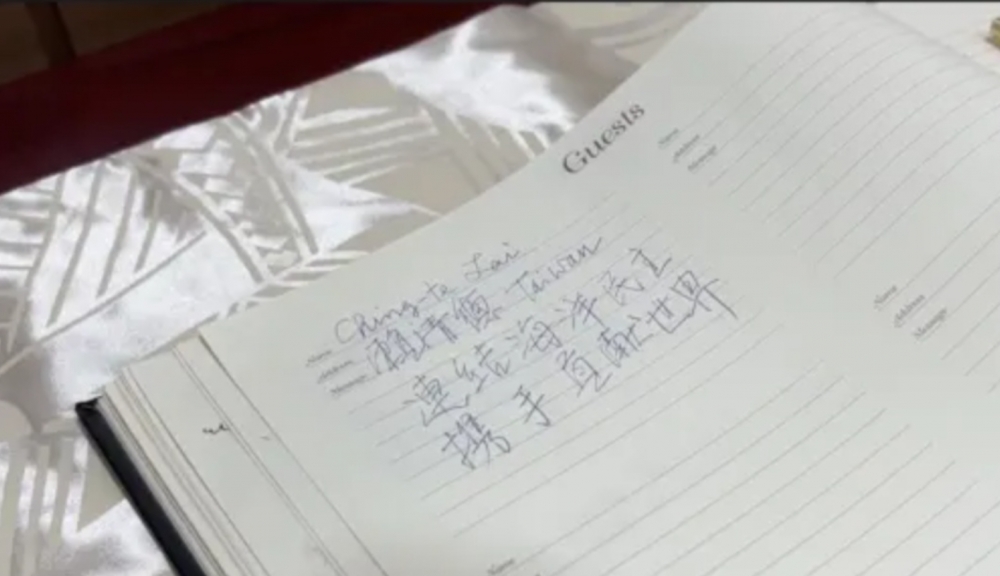 Guests
Name Ching-te Lai
Address 賴清德 Taiwan
Message 連結海洋民主
携手貢献世界
Name
Address
Message
Name
Address
Message
Name